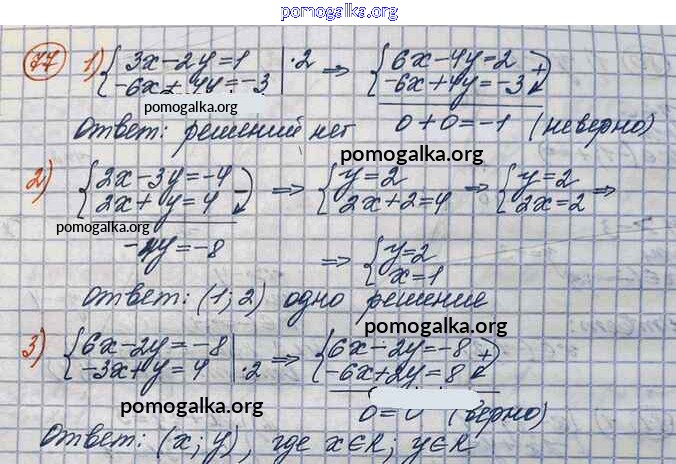 pomogalka.org
77 1) { 3x-2y=1 | ·2 ⇒ { 6x-4y=2
-6x+4y=-3 -6x+4y=-3 +
pomogalka.org
Ответ: решений нет 0+0=-1 (неверно)
pomogalka.org
2) { 2x-3y=-4 ⇒ { y=2 ⇒ { y=2 ⇒
2x+y=4 - 2x+2=4 2x=2
pomogalka.org
-4y=-8 ⇒ { y=2
x=1
Ответ: (1; 2) одно решение
pomogalka.org
3) { 6x-2y=-8 ⇒ { 6x-2y=-8
-3x+y=4 | ·2 -6x+2y=8 +
pomogalka.org
0=0 (верно)
Ответ: (x; y), где x∈R; y∈R